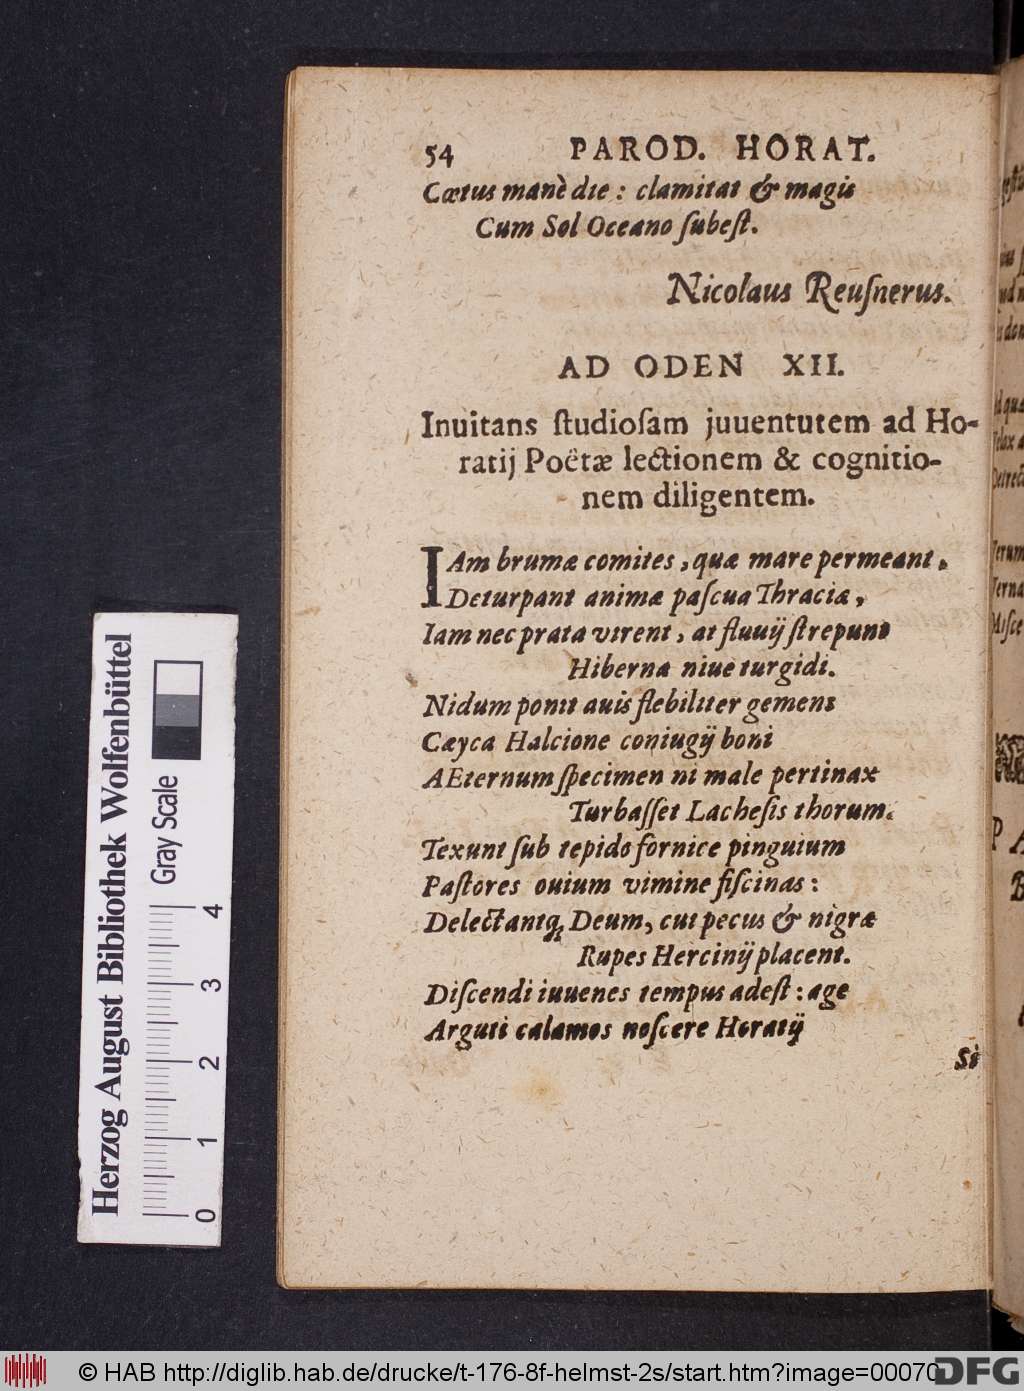 54 PAROD. HORAT.
Cœtus manè die : clamitat & magis
Cum Sol Oceano ſubeſt.
Nicolaus Reuſnerus.
AD ODEN XII.
Inuitans ſtudioſam juuentutem ad Ho-
ratij Poëtæ lectionem & cognitio-
nem diligentem.
IAm brumæ comites, quæ mare permeant,
Deturpant animæ paſcua Thraciæ,
Iam nec prata virent, at fluuij ſtrepunt
Hiberna niue turgidi.
Nidum ponit auis flebiliter gemens
Cæyca Halcione coniugij boni
AEternum ſpecimen ni male pertinax
Turbaſſet Lacheſis thorum.
Texunt ſub tepido fornice pinguium
Paſtores ouium vimine fiſcinas :
Delectantq; Deum, cui pecus & nigræ
Rupes Hercinij placent.
Diſcendi iuuenes tempus adeſt : age
Arguti calamos noſcere Horatij
Si
Herzog August Bibliothek Wolfenbüttel
Gray Scale
0 1 2 3 4
© HAB http://diglib.hab.de/drucke/t-176-8f-helmst-2s/start.htm?image=00070
DFG